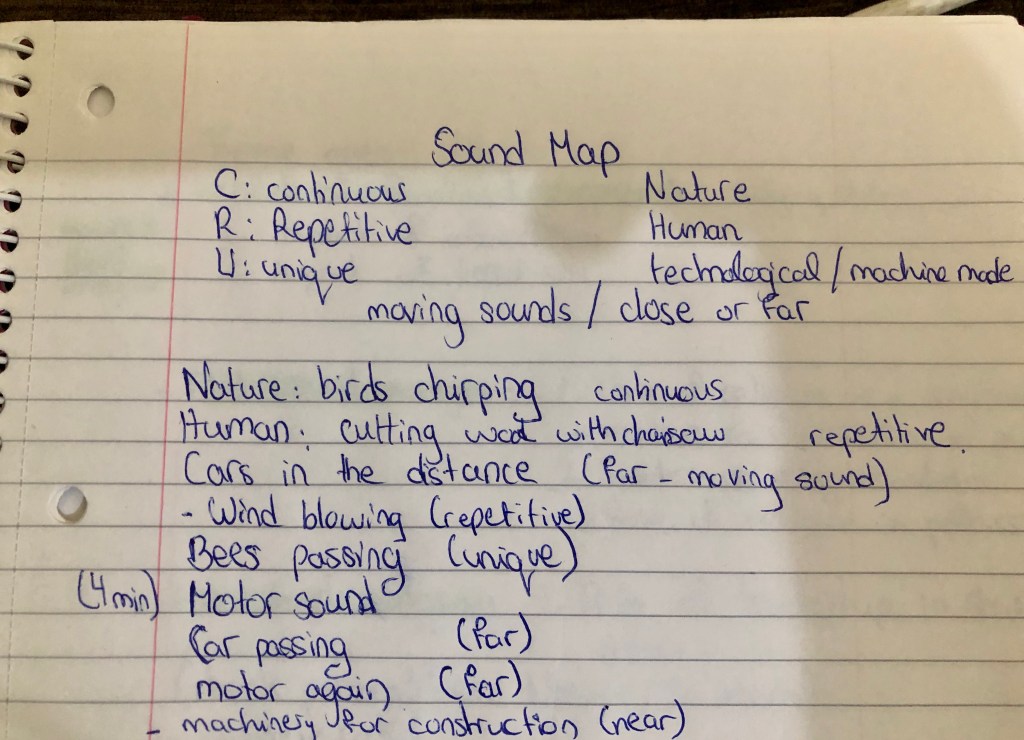 Sound Map
C: continuous Nature
R: Repetitive Human
U: unique technological / machine made
moving sounds / close or far
Nature: birds chirping continuous
Human: cutting wood with chainsaw repetitive.
Cars in the distance (far - moving sound)
- Wind blowing (repetitive)
Bees passing (unique)
(4 min) Motor sound
Car passing (far)
motor again (far)
- machinery for construction (near)